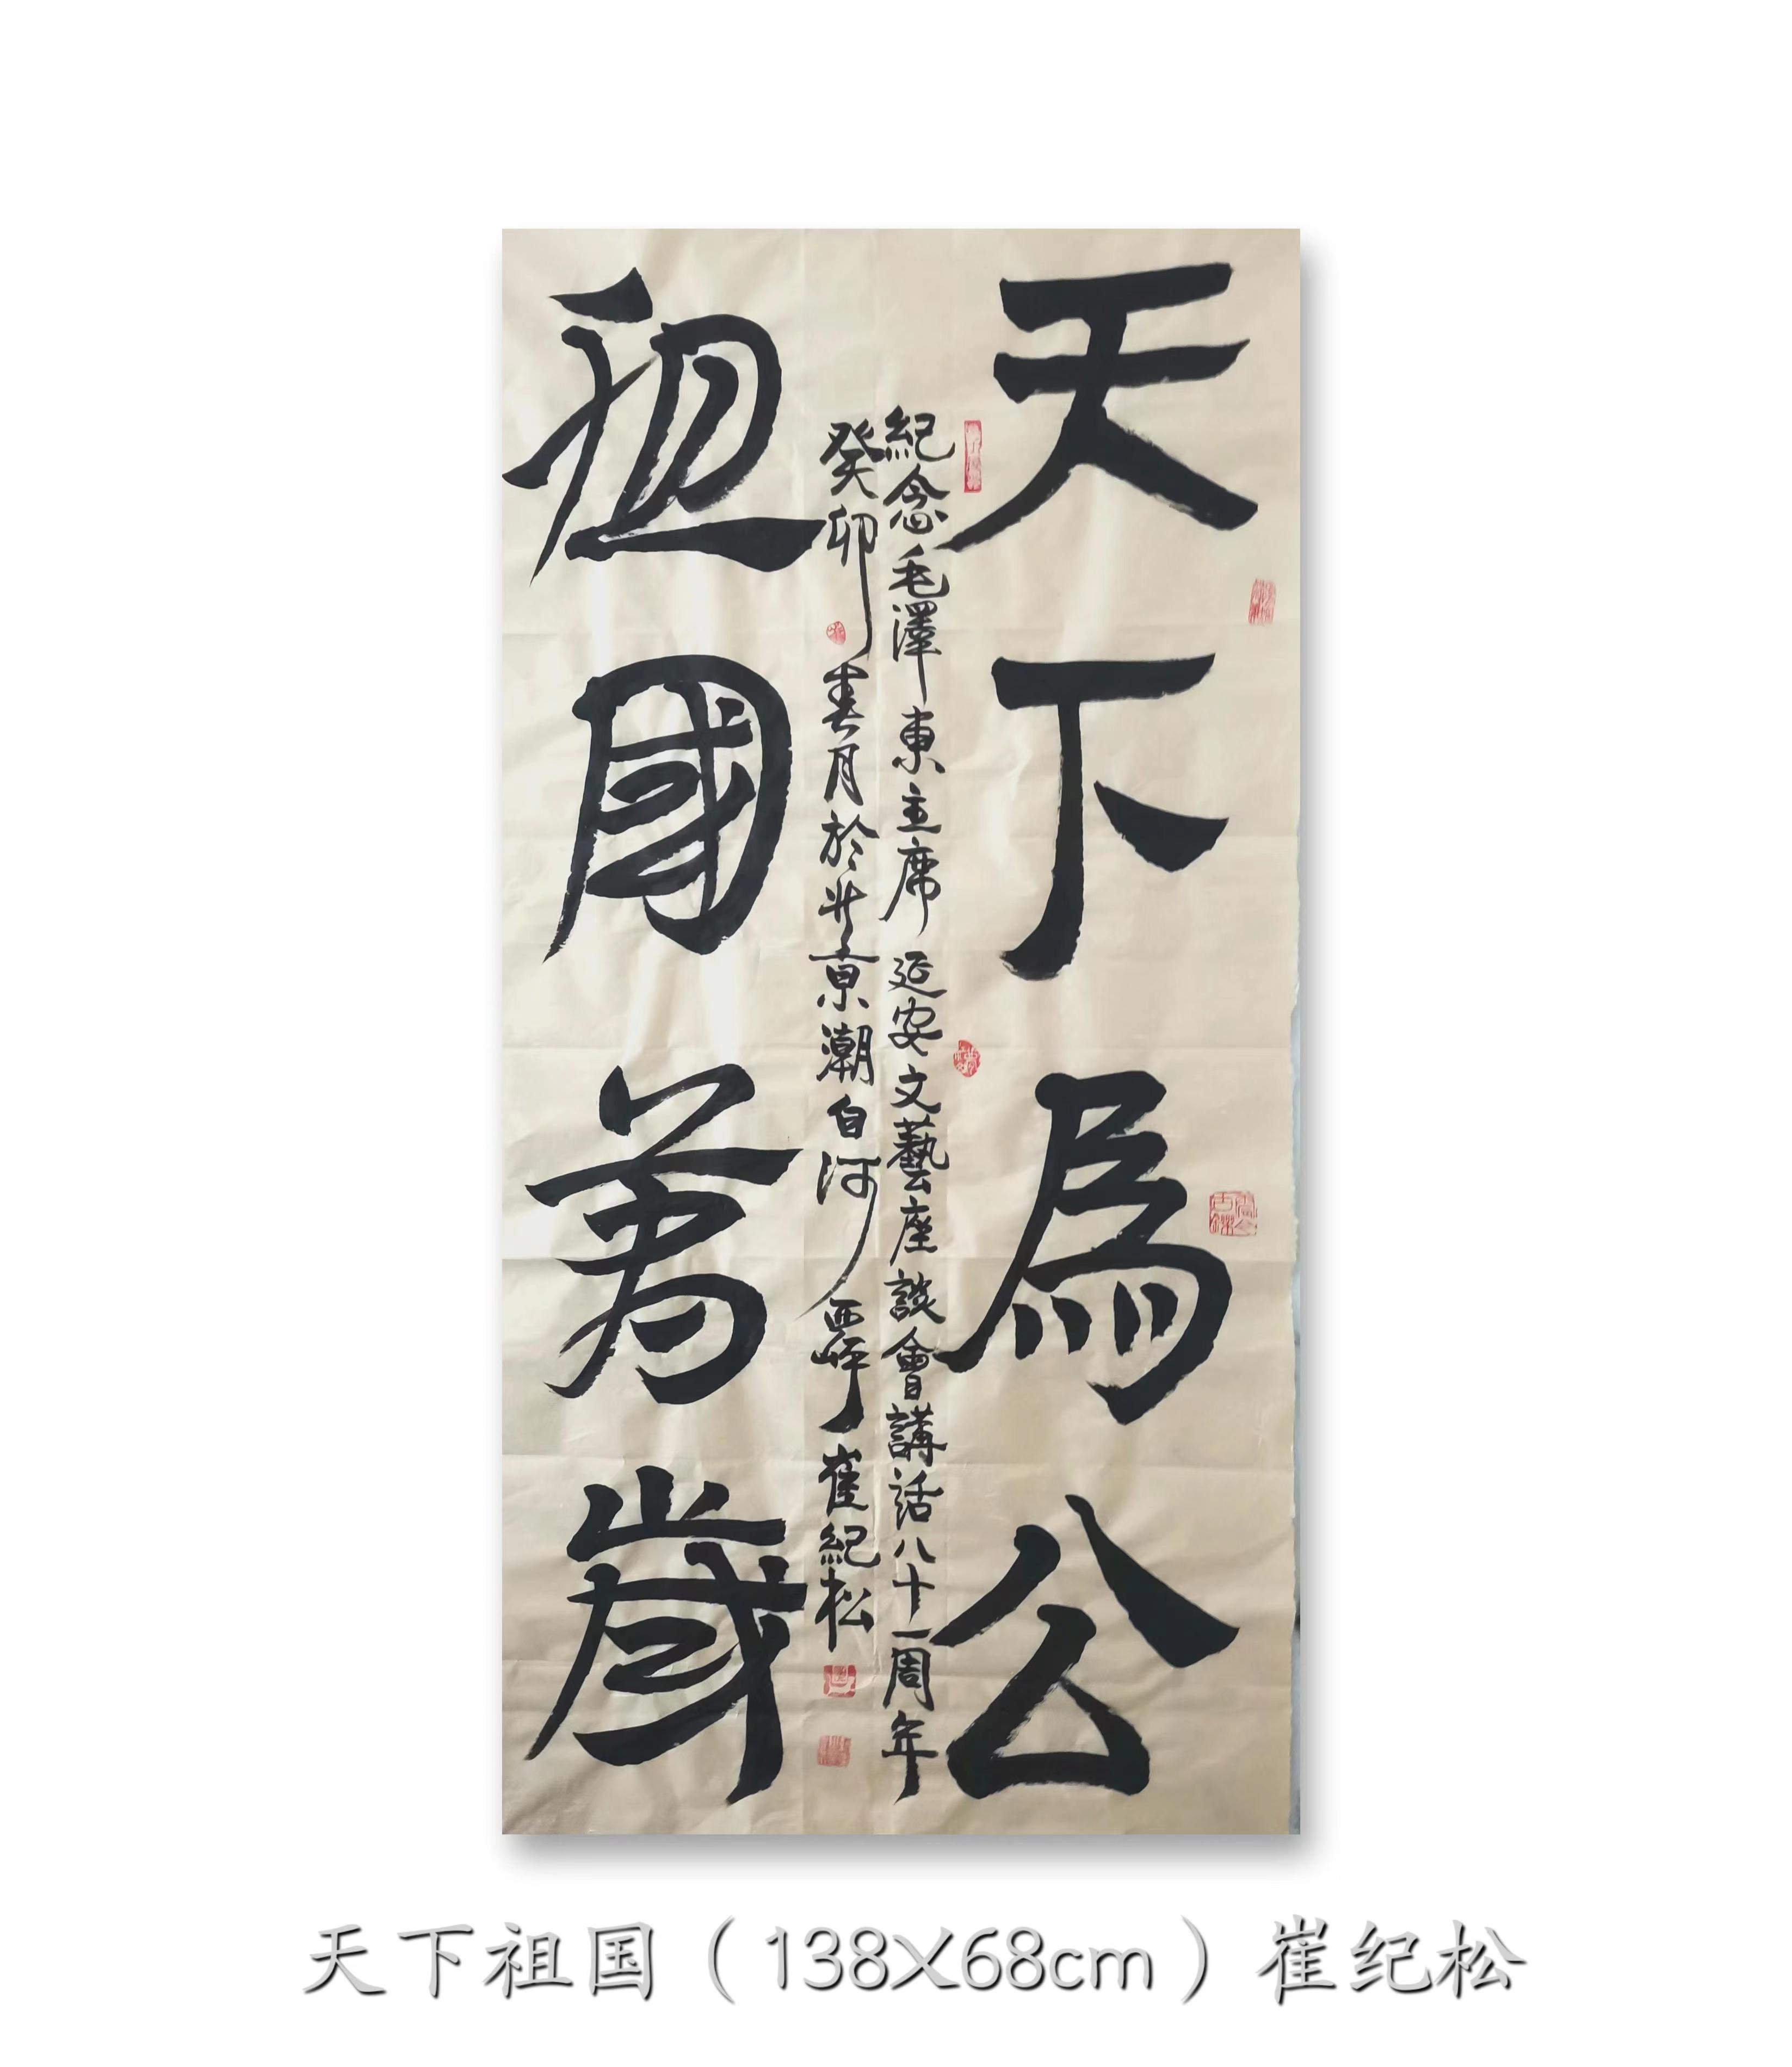 天下為公
紀念毛澤東主席延安文藝座談會講話八十一周年
癸卯春月於北京潮白河西岸崔紀松
祖國萬歲
天下祖国（138X68cm）崔纪松